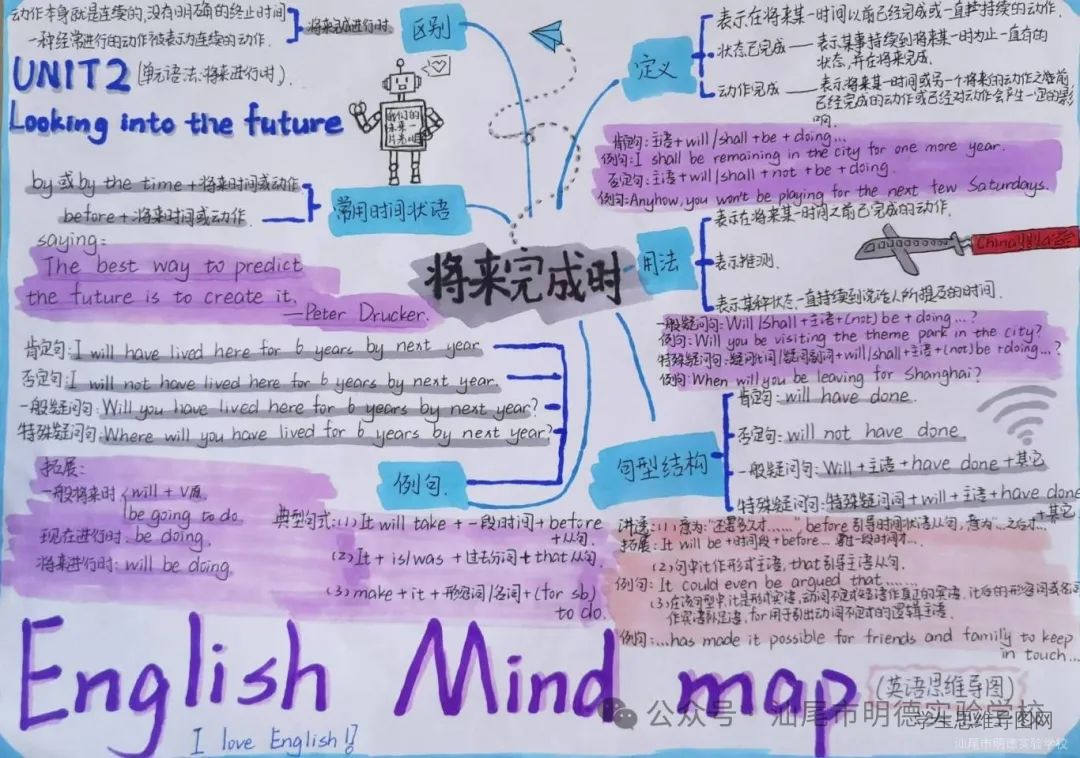 动作本身就是连续的,没有明确的终止时间
一种经常进行的动作被表示为连续的动作.
将来完成进行时.
区别
UNIT2 (单元语法:将来进行时).
Looking into the future
我们的
将来一
片光明
by 或 by the time + 将来时间或动作
before + 将来时间或动作.
常用时间状语
saying:
The best way to predict
the future is to create it.
—Peter Drucker.
将来完成时
定义
表示在将来某一时间以前已经完成或一直持续的动作.
状态已完成——表示某事持续到将来某一时为止一直有的
状态,并在将来完成.
动作完成——表示将来某一时间或另一个将来的动作之前
已经完成的动作或已经对动作会产生一定的影
响.
肯定句: 主语+will/shall+be+doing...
例句: I shall be remaining in the city for one more year.
否定句: 主语+will/shall+not+be+doing.
例句: Anyhow, you won't be playing for the next few Saturdays.
用法
表示在将来某一时间之前已完成的动作.
表示推测.
表示某种状态一直持续到说话人所提及的时间.
China制造
一般疑问句: Will/Shall+主语+(not) be+doing...?
例句: Will you be visiting the theme park in the city?
特殊疑问句: 疑问代词/疑问副词+will/shall+主语+(not) be+doing...?
例句: When will you be leaving for Shanghai?
肯定句: I will have lived here for 6 years by next year.
否定句: I will not have lived here for 6 years by next year.
一般疑问句: Will you have lived here for 6 years by next year?
特殊疑问句: Where will you have lived for 6 years by next year?
例句.
句型结构
肯定句: will have done.
否定句: will not have done.
一般疑问句: Will+主语+have done+其它
特殊疑问句: 特殊疑问词+will+主语+have done
+其它
拓展:
一般将来时 will + V原.
be going to do
现在进行时: be doing.
将来进行时: will be doing.
典型句式: (1) It will take + 一段时间 + before
+从句.
(2) It + is/was + 过去分词 + that 从句.
(3) make + it + 形容词/名词 + (for sb)
to do.
讲透: (1) 意为:"还要多久才......", before 引导时间状语从句, 意为"...之后才..."
拓展: It will be+时间段+before... 要一段时间才...
(2) 句中it作形式主语, that引导主语从句.
例句: It could even be argued that........
(3) 在该句型中, it是形式宾语, 动词不定式短语作真正的宾语, it后的形容词或名词
作宾语补足语, for用于引出动词不定式的逻辑主语.
例句: ...has made it possible for friends and family to keep
in touch...
English Mind map
(英语思维导图)
I love English!
公众号·汕尾市明德实验学校
学生思维导图网
汕尾市明德实验学校